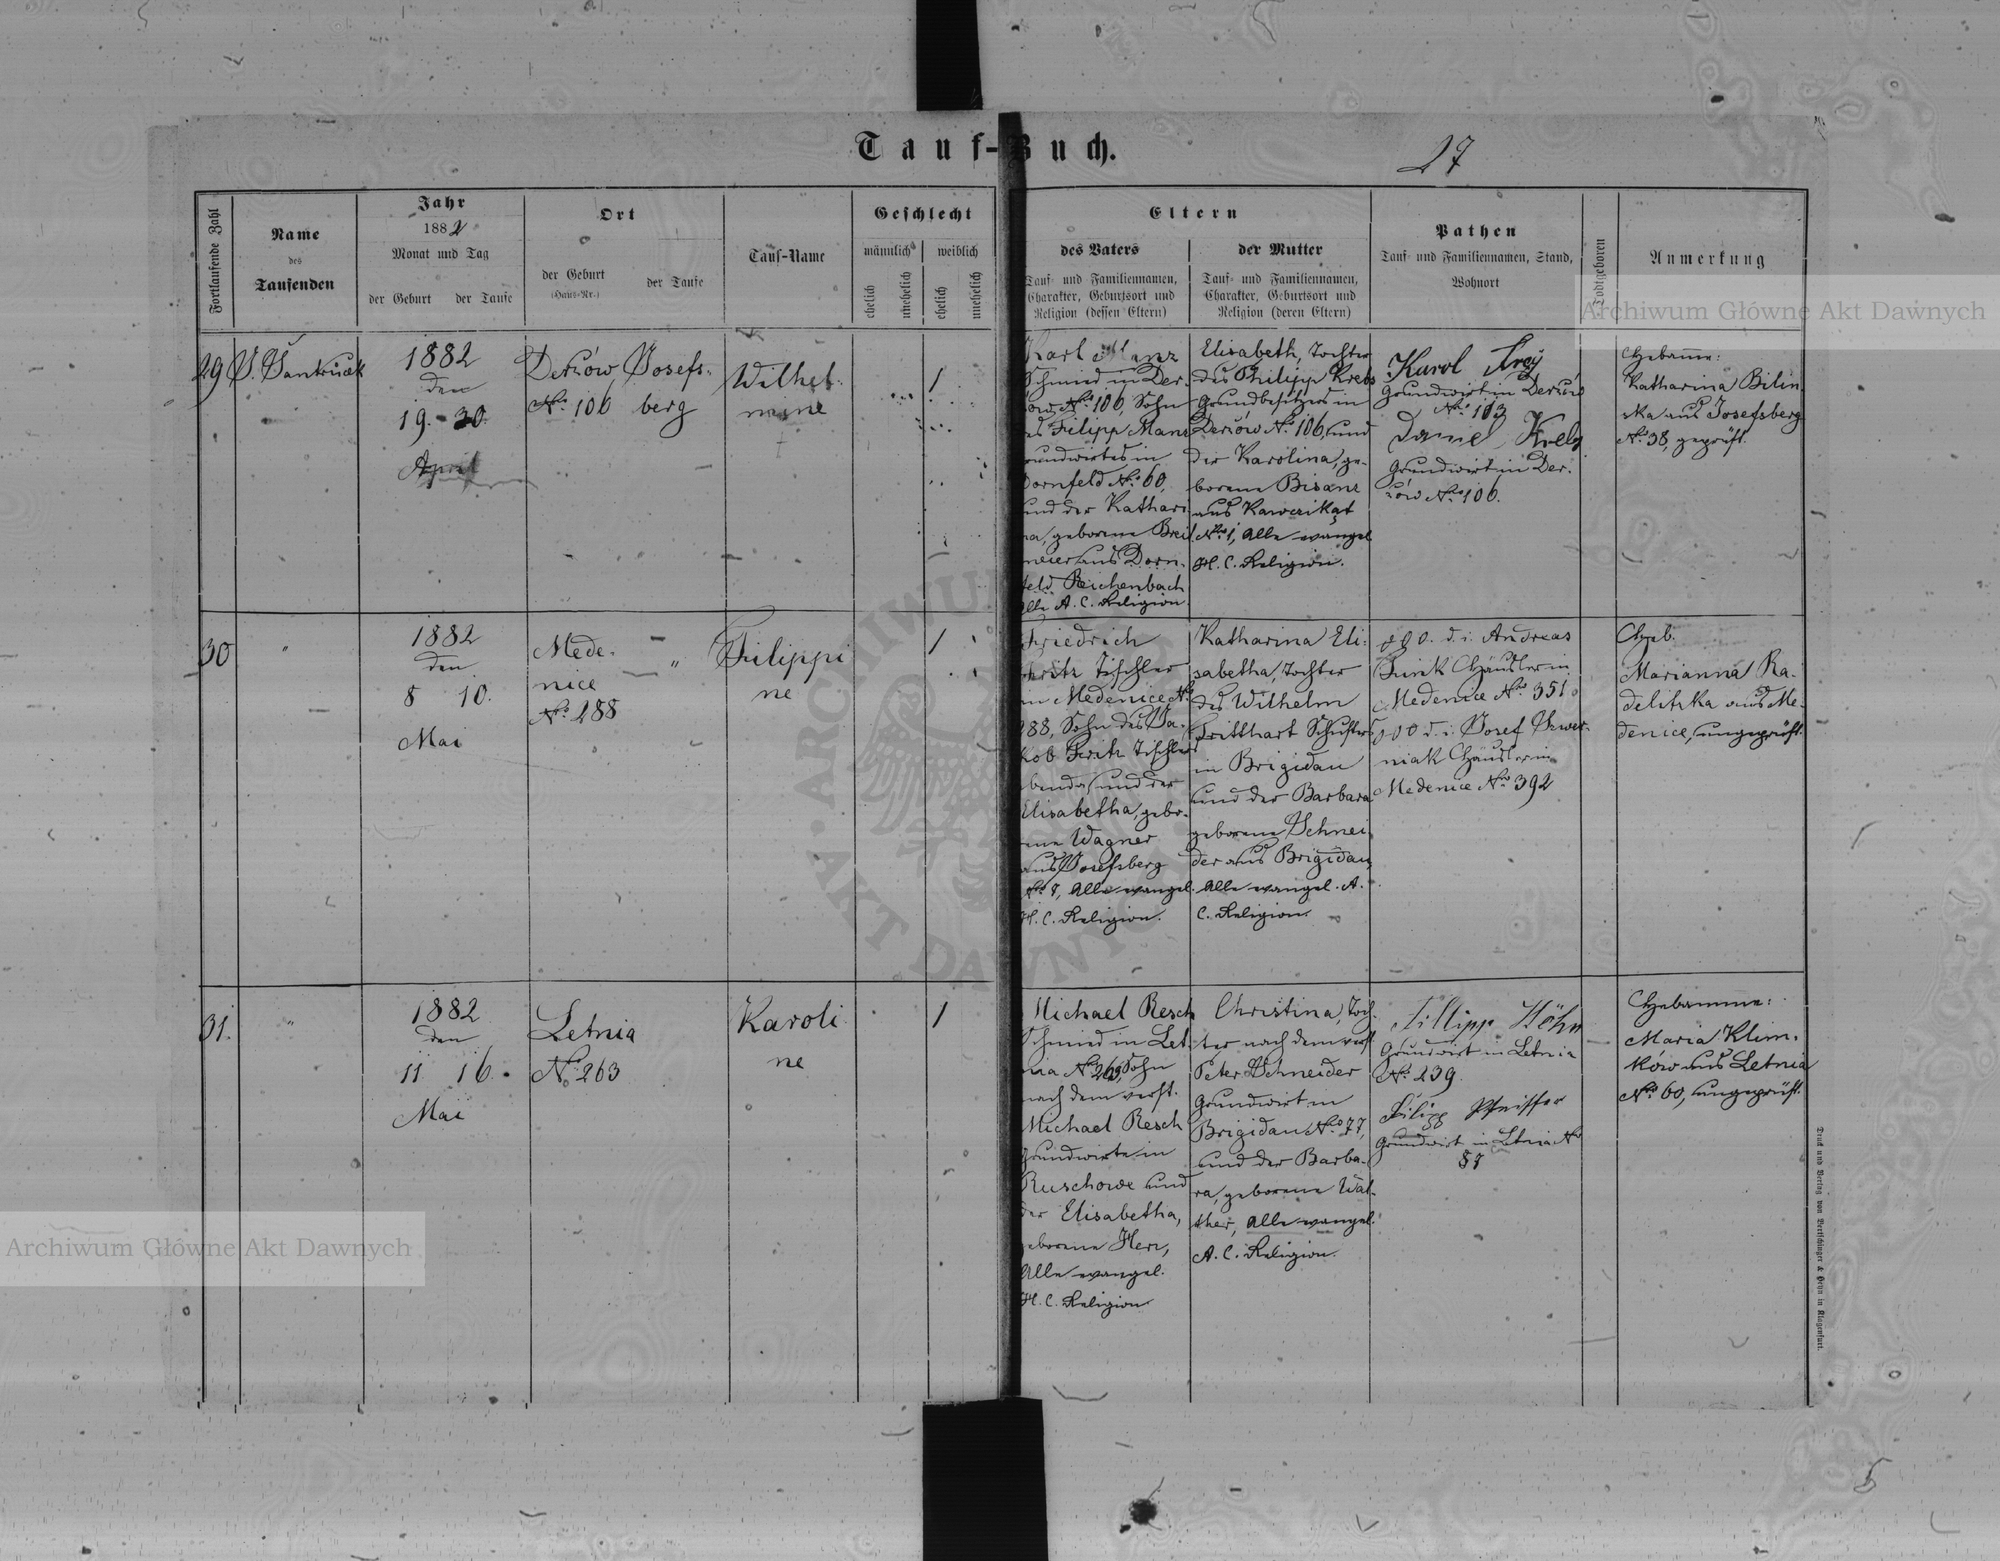 Tauf-Buch.
27
Fortlaufende Zahl
Name
des
Taufenden
Jahr
1882
Monat und Tag
der Geburt der Taufe
Ort
der Geburt
(Haus-Nr.)
der Taufe
Tauf-Name
Geschlecht
männlich weiblich
ehelich unehelich ehelich unehelich
Eltern
des Vaters
Tauf- und Familiennamen,
Charakter, Geburtsort und
Religion (dessen Eltern)
der Mutter
Tauf- und Familiennamen,
Charakter, Geburtsort und
Religion (deren Eltern)
Pathen
Tauf- und Familiennamen, Stand,
Wohnort
Todtgeboren
Anmerkung
Archiwum Główne Akt Dawnych
29
1882
den
19. - 30.
April
Derżów
No. 106
Josefs-
berg
Wilhel-
mine
1
Karl Manz
Schmied in Der-
żów No. 106, Sohn
des Filipp Manz
Grundwirtes in
Dornfeld No. 60,
und der Kathari
na, geborene Brei
meier aus Dorn-
feld Reichenbach
Alle A. C. Religion
Elisabeth, Tochter
des Philipp Krebs
Grundbesitzers in
Derżów No. 106, und
der Karolina, ge-
borene Bisanz
aus Kawczikąt
No. 1, Alle evangel
H. C. Religion.
Karol
Grundwirt in Derżów
No. 113
Daniel Krebs
Grundwirt in Der-
żów No. 106.
Hebamme:
Katharina Bilin
ska aus Josefsberg
No. 38, geprüft.
30
"
1882
den
8 10.
Mai
Mede-
nice
No. 288
"
Filippi
ne
1
Friedrich
Fritz Tischler
in Medenice No.
288, Sohn des Ja-
kob Fritz Tischler
ebenda, und der
Elisabetha, gebo-
rene Wagner
aus Josefsberg
No. 7, Alle evangel.
H. C. Religion.
Katharina Eli-
sabetha, Tochter
des Wilhelm
Britthart Schusters
in Brigidau
und der Barbara
geborene Schnei
der aus Brigidau,
Alle evangel. A.
C. Religion.
d. i. Andreas
Häusler in
Medenice No. 351
d. i. Josef
niak Häusler in
Medenice No. 392
Heb.
Marianna Ra-
delitzka aus Me-
denice, ungeprüft.
31.
"
1882
den
11 16.
Mai
Letnia
No. 263
Karoli
ne
1
Michael Resch
Schmied in Let
nia No. 263, Sohn
nach dem verst.
Michael Resch
Grundwirte in
Ruschowe und
der Elisabetha,
geborene Herz,
Alle evangel.
H. C. Religion
Christina, Toch-
ter nach dem verst.
Peter Schneider
Grundwirt in
Brigidau No. 77,
und der Barba-
ra, geborene Wal-
ther, Alle evangel.
A. C. Religion.
Fillipp Höhn
Grundwirt in Letnia
No. 239
Filipp Pfeiffer
Grundwirt in Letnia No
87
Hebamme:
Maria Klim-
ków aus Letnia
No. 60, ungeprüft.
Archiwum Główne Akt Dawnych
ARCHIWUM
AKT DAWNYCH
Druck und Verlag von Bertschinger & Heyn in Klagenfurt.